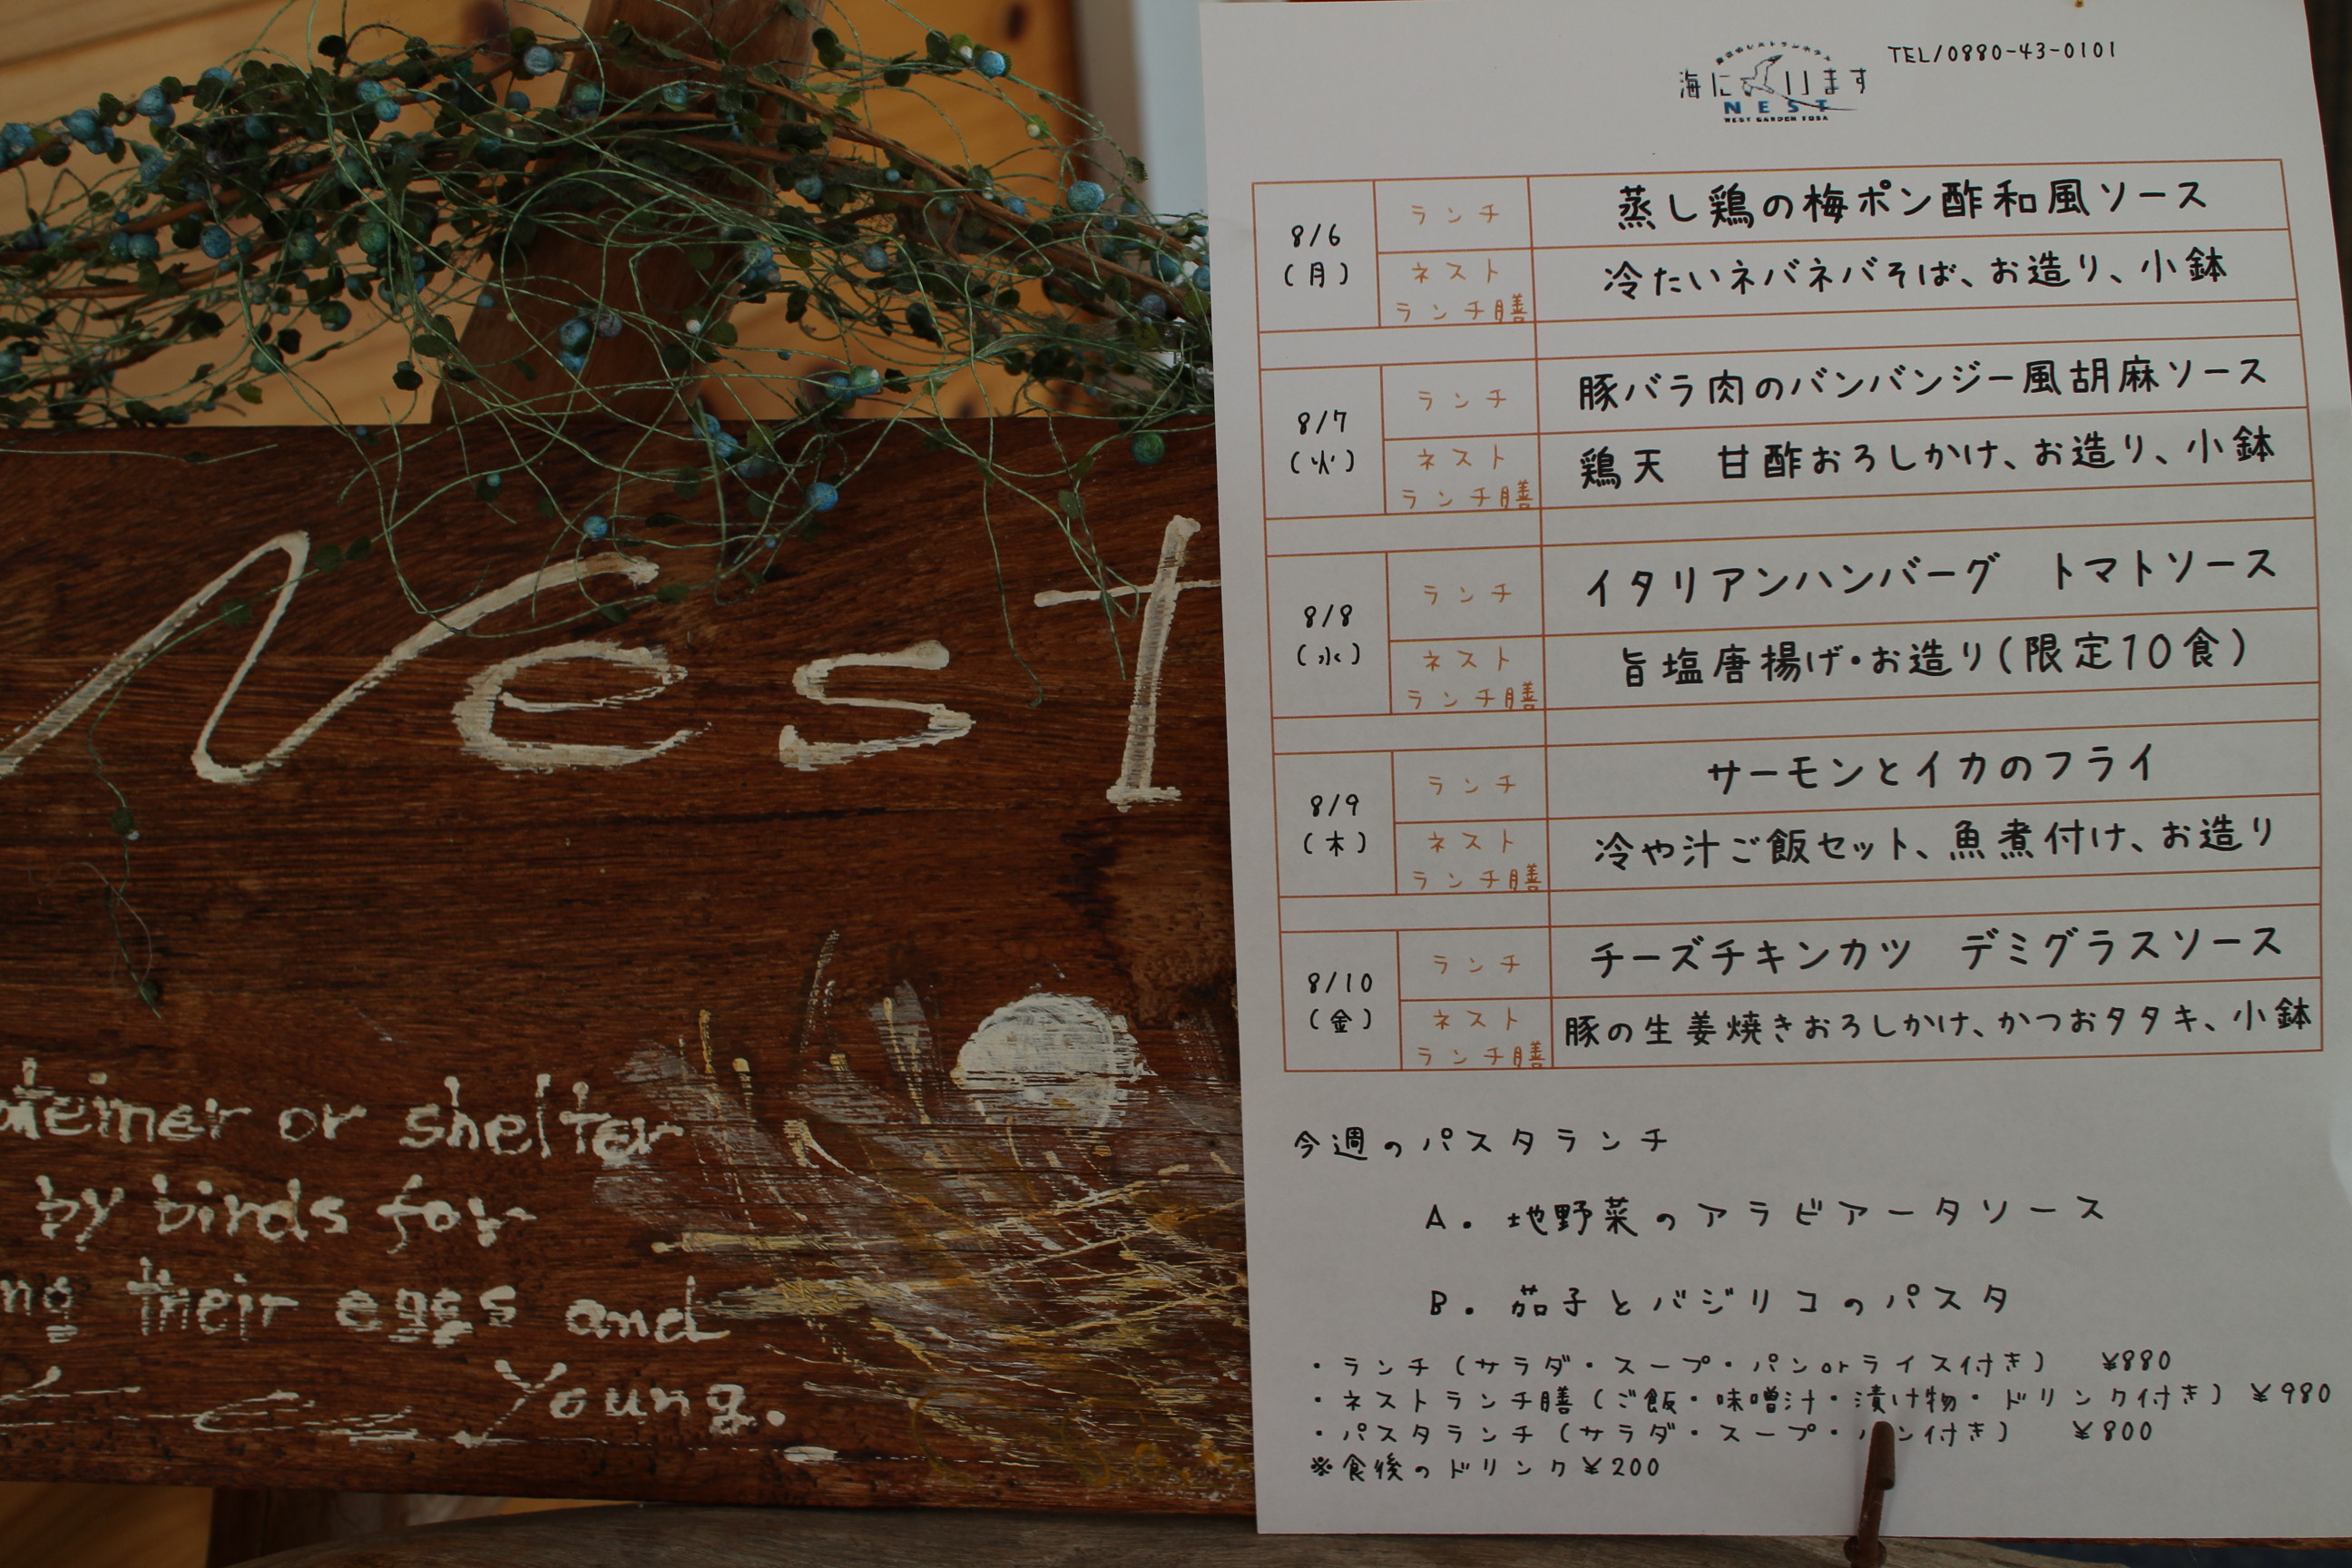 Nest
ateiner or shelter
by birds for
ng their eggs and
Young.
海にいます
NEST
WEST GARDEN TOSA
TEL/0880-43-0101
8/6
(月)
ランチ
蒸し鶏の梅ポン酢和風ソース
ネスト
ランチ膳
冷たいネバネバそば、お造り、小鉢
8/7
(火)
ランチ
豚バラ肉のバンバンジー風胡麻ソース
ネスト
ランチ膳
鶏天 甘酢おろしかけ、お造り、小鉢
8/8
(水)
ランチ
イタリアンハンバーグ トマトソース
ネスト
ランチ膳
旨塩唐揚げ・お造り(限定10食)
8/9
(木)
ランチ
サーモンとイカのフライ
ネスト
ランチ膳
冷や汁ご飯セット、魚煮付け、お造り
8/10
(金)
ランチ
チーズチキンカツ デミグラスソース
ネスト
ランチ膳
豚の生姜焼きおろしかけ、かつおタタキ、小鉢
今週のパスタランチ
A. 地野菜のアラビアータソース
B. 茄子とバジリコのパスタ
・ランチ(サラダ・スープ・パンorライス付き) ¥880
・ネストランチ膳(ご飯・味噌汁・漬け物・ドリンク付き) ¥980
・パスタランチ(サラダ・スープ・パン付き) ¥800
※食後のドリンク¥200